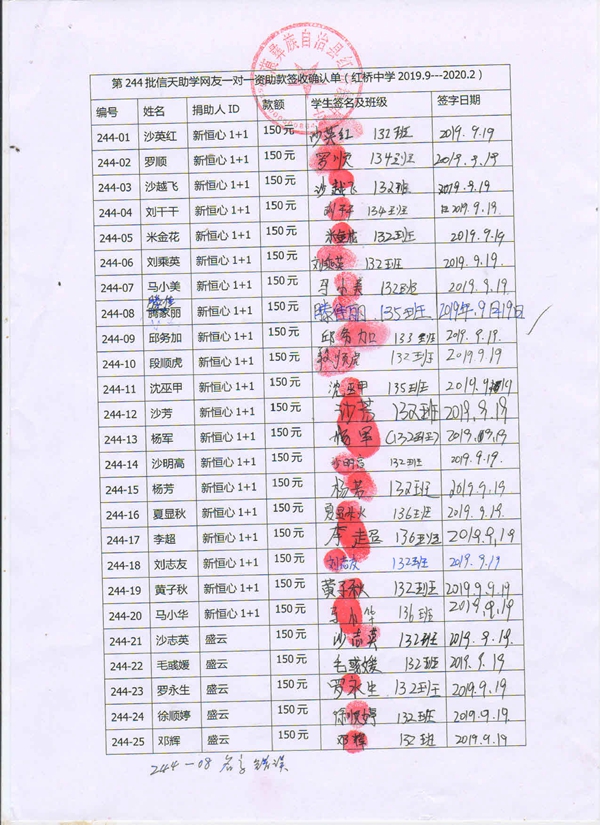 彝族自治县红
第 244 批信天助学网友一对一资助款签收确认单（红桥中学 2019.9---2020.2）
编号 姓名 捐助人 ID 款额 学生签名及班级 签字日期
244-01 沙英红 新恒心 1+1 150 元 沙英红 132班 2019.9.19
244-02 罗顺 新恒心 1+1 150 元 罗顺 134班 2019.9.19
244-03 沙越飞 新恒心 1+1 150 元 沙越飞 132班 2019.9.19
244-04 刘干干 新恒心 1+1 150 元 134班 2019.9.19
244-05 米金花 新恒心 1+1 150 元 米金花 132班 2019.9.19
244-06 刘乘英 新恒心 1+1 150 元 132班 2019.9.19
244-07 马小美 新恒心 1+1 150 元 马小美 132班 2019.9.19
244-08 家丽 新恒心 1+1 150 元 135班 2019年9月19日
244-09 邱务加 新恒心 1+1 150 元 邱务加 133班 2019.9.19
244-10 段顺虎 新恒心 1+1 150 元 段顺虎 132班 2019.9.19
244-11 沈巫甲 新恒心 1+1 150 元 沈巫甲 135班 2019.9.19
244-12 沙芳 新恒心 1+1 150 元 沙芳 132班 2019.9.19
244-13 杨军 新恒心 1+1 150 元 杨军 (132班) 2019.
244-14 沙明高 新恒心 1+1 150 元 沙明高 132班 2019.9.19.
244-15 杨芳 新恒心 1+1 150 元 杨芳 132班 2019.9.19
244-16 夏显秋 新恒心 1+1 150 元 夏显秋 136班 2019.9.19.
244-17 李超 新恒心 1+1 150 元 李超 136班 2019.9.19
244-18 刘志友 新恒心 1+1 150 元 刘志友 132班 2019.9.19
244-19 黄子秋 新恒心 1+1 150 元 黄子秋 132班 2019.9.19
244-20 马小华 新恒心 1+1 150 元 马小华 136班 2019.9.19
244-21 沙志英 盛云 150 元 沙志英 132班 2019.9.19
244-22 毛彧媛 盛云 150 元 毛彧媛 132班 2019.9.19
244-23 罗永生 盛云 150 元 罗永生 132班 2019.9.19
244-24 徐顺婷 盛云 150 元 徐顺婷 132班 2019.9.19.
244-25 邓辉 盛云 150 元 邓辉 132班 2019.9.19
244-08 名字错误